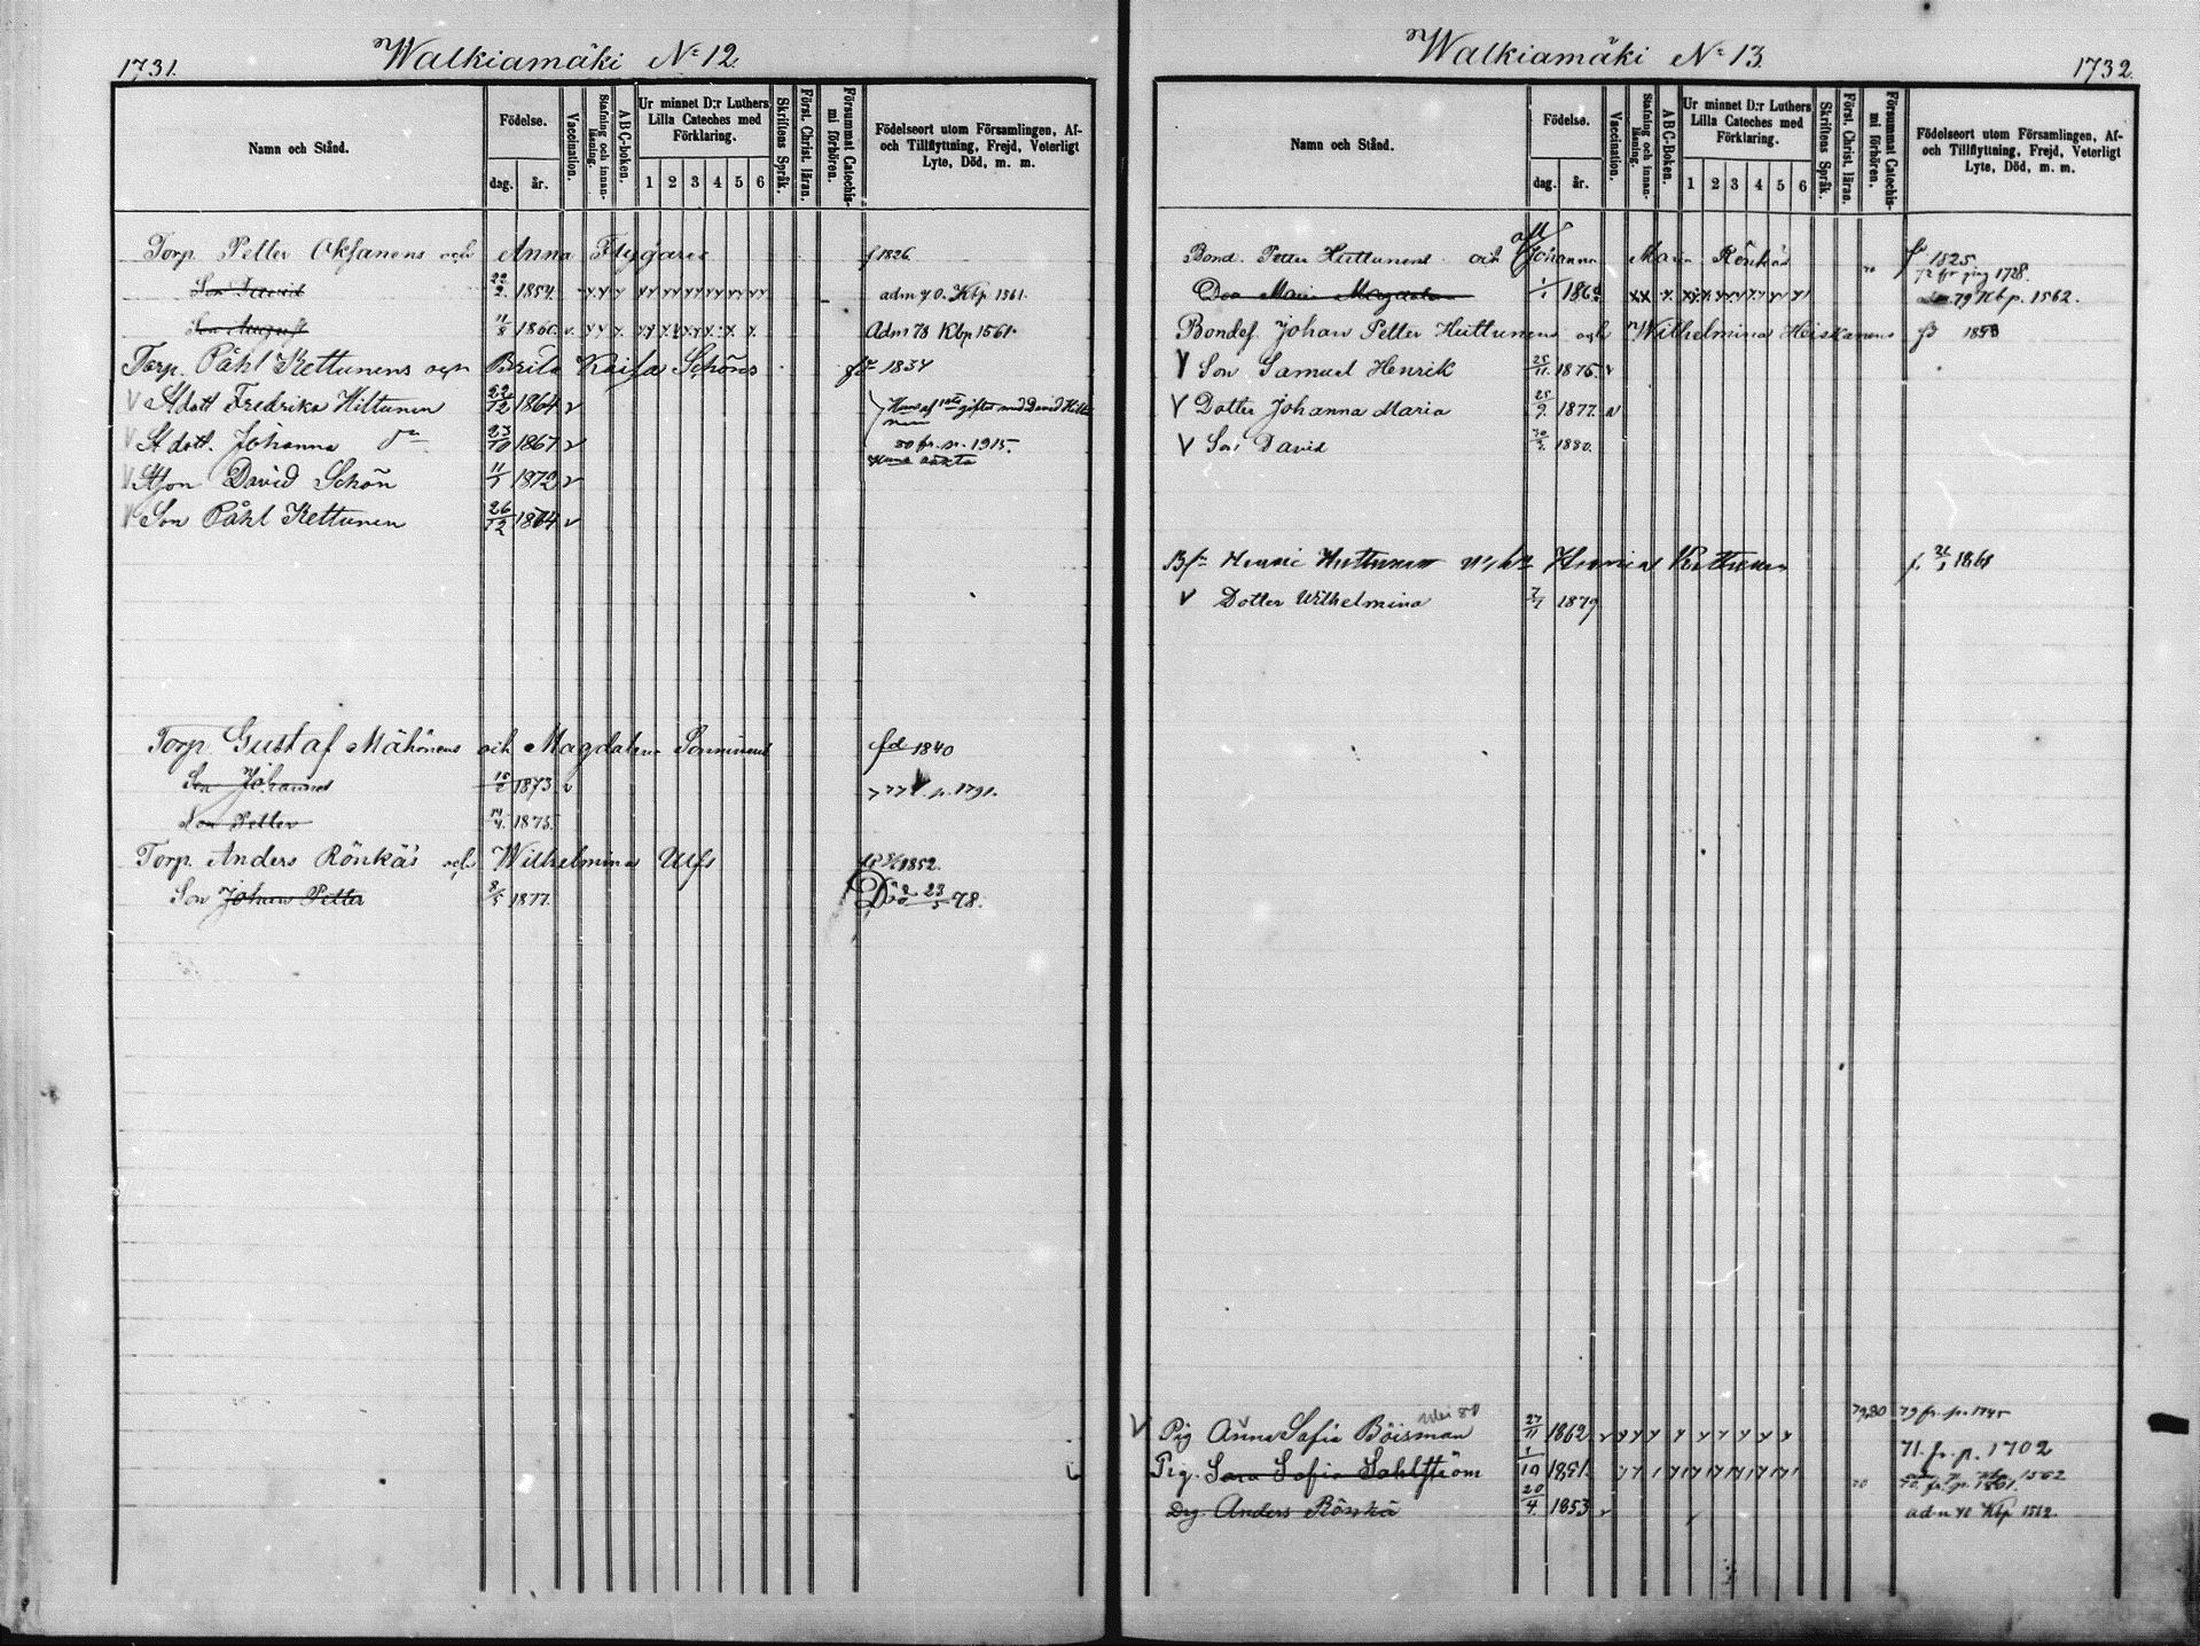 1731.
Walkiamäki No 12.
Namn och Stånd.
Födelse.
dag. år.
Vaccination.
Stafning och innan-läsning.
ABC-boken.
Ur minnet D:r Luthers Lilla Cateches med Förklaring.
1 2 3 4 5 6
Skriftens Språk.
Först. Christ. läran.
Försummat Catechis-mi förhören.
Födelseort utom Församlingen, Af- och Tillflyttning, Frejd, Veterligt Lyte, Död, m. m.
Torp. Petter Oksanens och Anna Flygare f 1826
Son David 22/2. 1854. adm 70. Kbp 1561.
Son August 11/8 1860. v. Adm 78 Kbp 1561.
Torp. Påhl Kettunens och Brita Kaisa Schöns 1834
V Stdott Fredrika Hiltunen 22/12 1864 v gifter med David Hiltu
V St dott. Johanna 23/10 1867 v 80 fr. p. 1915.
V Stson David Schön 11/1 1872 v
V Son Påhl Kettunen 26/12 1874 v
Torp. Gustaf Mähönens och Magdalena fd 1840
Son Johannes 1873. v p. 1791.
Son Petter 1875.
Torp. Anders Rönkä's och Wilhelmina Ulfs 1852.
Son Johan Petter 8/5 1877. Död 23/5 78.
Walkiamäki No 13.
1732.
Namn och Stånd.
Födelse.
dag. år.
Vaccination.
Stafning och innan-läsning.
ABC-Boken.
Ur minnet D:r Luthers Lilla Cateches med Förklaring.
1 2 3 4 5 6
Skriftens Språk.
Först. Christ. läran.
Försummat Catechis-mi förhören.
Födelseort utom Församlingen, Af- och Tillflyttning, Frejd, Veterligt Lyte, Död, m. m.
Bond. Petter Huttunens och Johanna Maria Rönkäs 1825
1728.
Maria Magdalena 1/1 79 Kbp. 1562.
Bondes. Johan Petter Huttunens och Wilhelmina Heiskanens
V Son Samuel Henrik 25/11. 1875. v
V Dotter Johanna Maria 25/9. 1877. v
V Son David 1880.
Henric Huttunen Huttunen
V Dotter Wilhelmina 1879
79,80 79 fr. p. 1745
V Pig Anna Sofia Böisman 27/11 1862 v
71. fr. p. 1702
Pig. Sara Sofia Sahlström 1/10 1851. 1562
Drg. Anders Rönkä 20/4. 1853 v adm Kbp 1562.